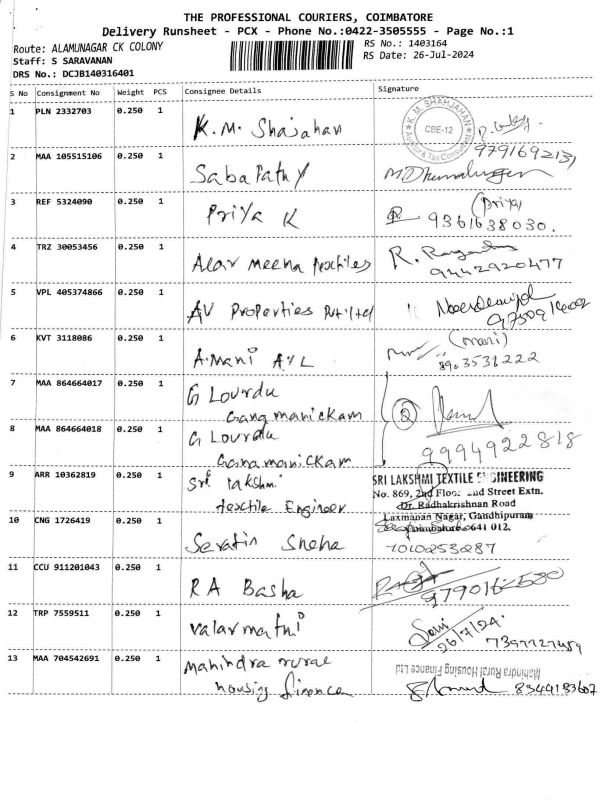 THE PROFESSIONAL COURIERS, COIMBATORE
Delivery Runsheet - PCX - Phone No.:0422-3505555 - Page No.:1
Route: ALAMUNAGAR CK COLONY
RS No.: 1403164
Staff: S SARAVANAN
RS Date: 26-Jul-2024
DRS No.: DCJB140316401
S No Consignment No Weight PCS Consignee Details Signature
1 PLN 2332703 0.250 1 K.M. Shajahan
K. M. SHAHJAHAN
CBE-12
& Tax Consultant
9791692131
2 MAA 105515106 0.250 1 Sabapathy
3 REF 5324090 0.250 1 Priya K (Priya)
9361638030.
4 TRZ 30053456 0.250 1 Alar meena textiles R.
9442920477
5 VPL 405374866 0.250 1 AV Properties Pvt ltd
6 KVT 3118086 0.250 1 A.mani A/L (mani)
8903531222
7 MAA 864664017 0.250 1 G Lourdu
Gangmanickam
8 MAA 864664018 0.250 1 G Lourdu
Ganamanickam
9994922818
9 ARR 10362819 0.250 1 Sri lakshmi
textile Engineer
SRI LAKSHMI TEXTILE ENGINEERING
No. 869, 2nd Floor 2nd Street Extn.
Dr. Radhakrishnan Road
Laxmanan Nagar, Gandhipuram
Coimbatore 641 012.
10 CNG 1726419 0.250 1 Serafin Sneha
7010253287
11 CCU 911201043 0.250 1 R A Basha
12 TRP 7559511 0.250 1 Valarmathi
26/7/24.
13 MAA 704542691 0.250 1 Mahindra rural
housing finance
Mahindra Rural Housing Finance Ltd
8344183607